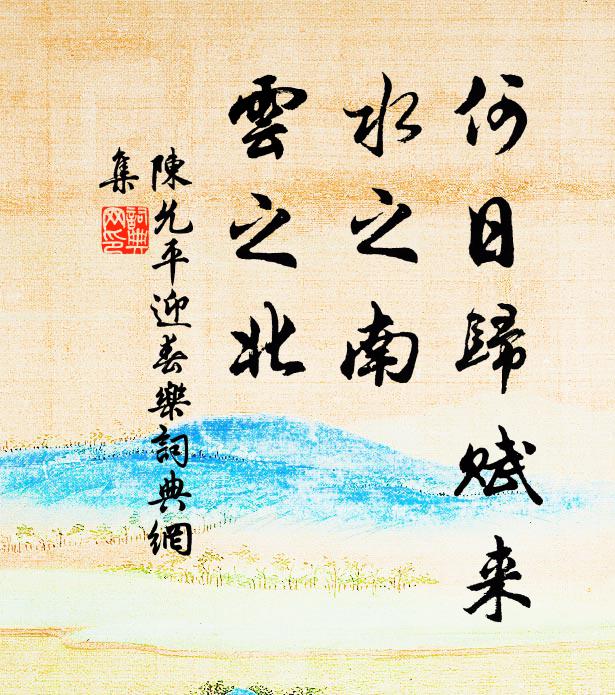 何日歸賦来
水之南
雲之北
陳允平迎春樂詞典網
集
詞典
网印